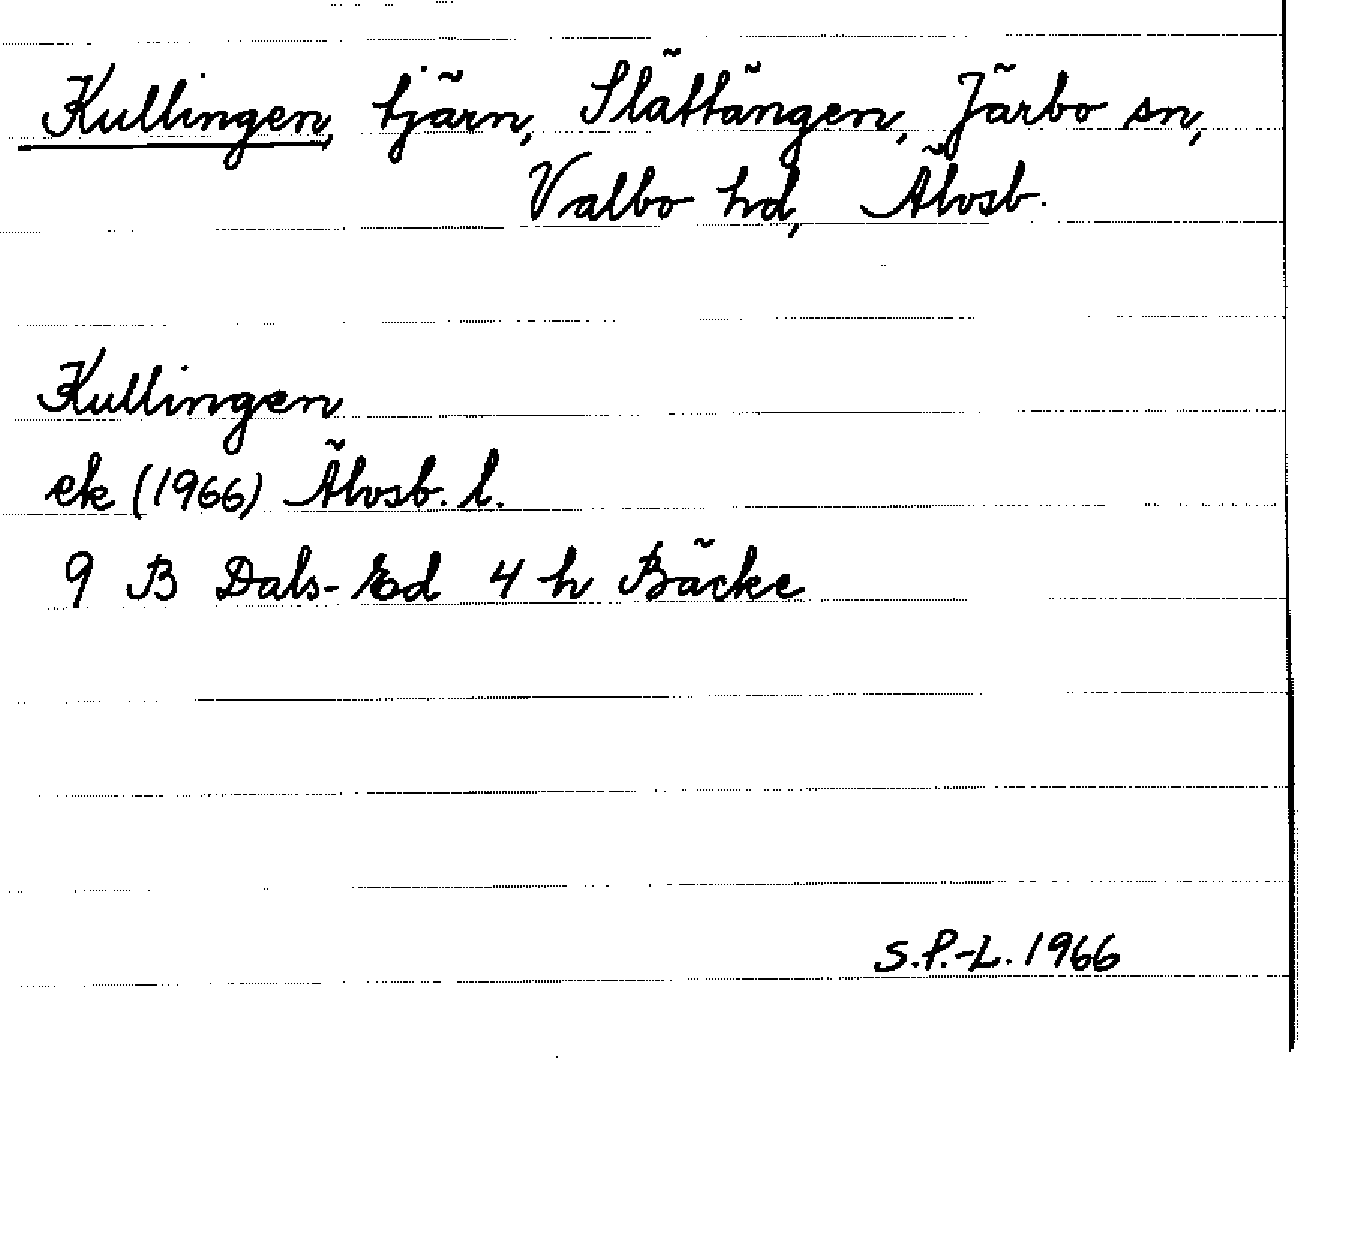 Kullingen, tjärn, Slättängen, Järbo sn,
Valbo hd, Älvsb.
Kullingen
ek (1966) Älvsb. l.
9 B Dals-Ed 4 h Bäcke
S.P.-L. 1966